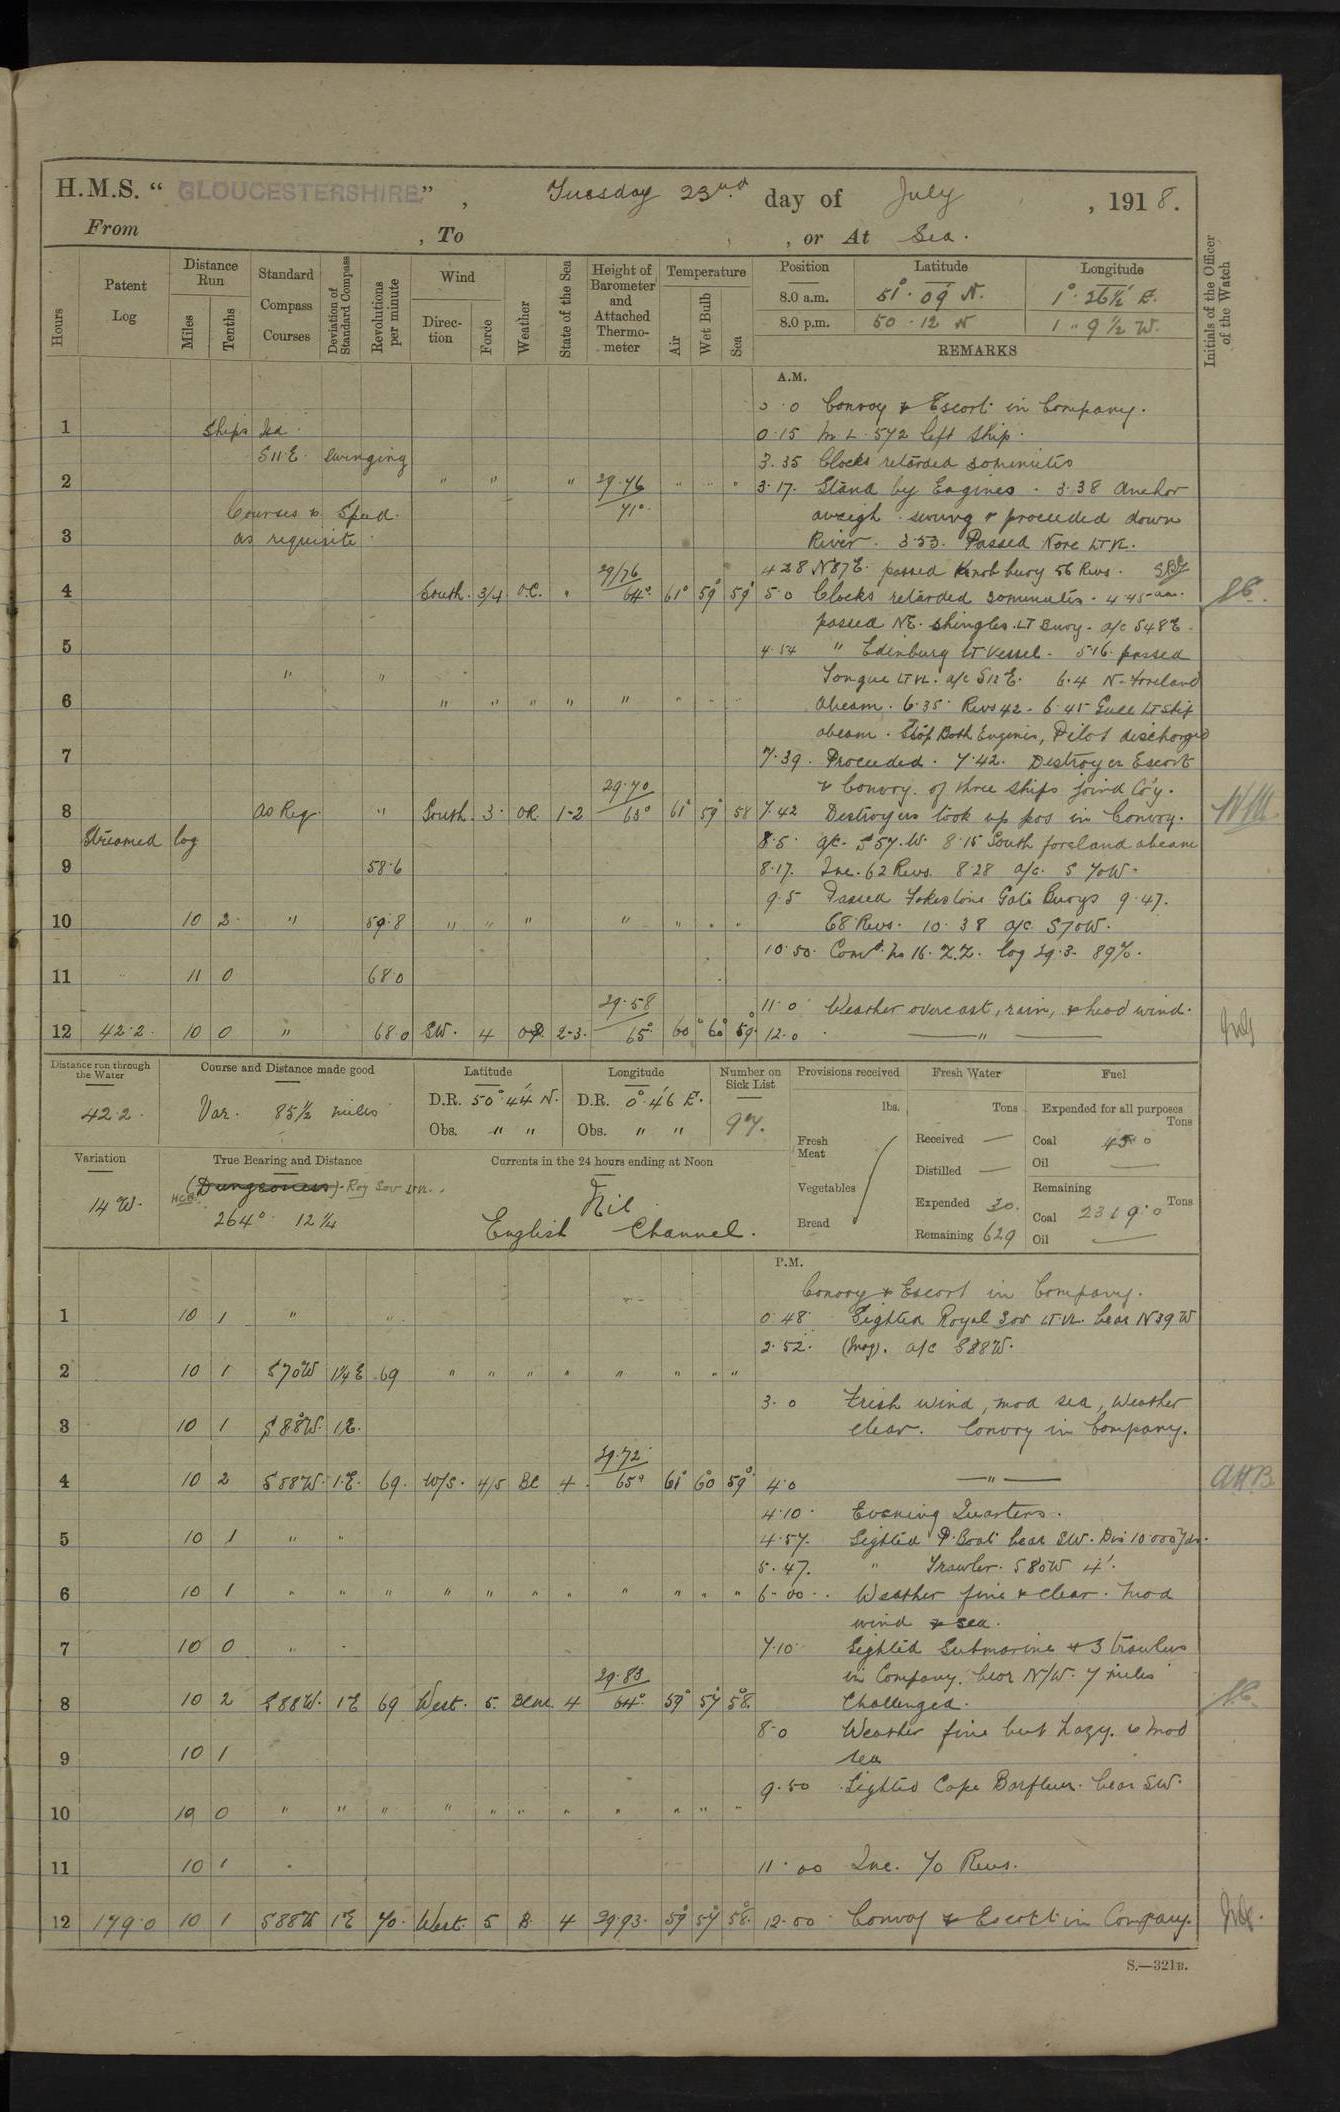 H.M.S. “ GLOUCESTERSHIRE ” , Tuesday 23rd day of July , 1918.
From , To , or At Sea.
Hours
Patent Log
Distance Run
Miles
Tenths
Standard Compass Courses
Deviation of Standard Compass
Revolutions per minute
Wind
Direction
Force
Weather
State of the Sea
Height of Barometer and Attached Thermometer
Temperature
Air
Wet Bulb
Sea
Position Latitude Longitude
8.0 a.m. 51° 09' N. 1° 26½ E.
8.0 p.m. 50 . 12 N 1 " 9½ W.
REMARKS
Initials of the Officer of the Watch
A.M.
0.0 Convoy & Escort in Company.
1 Ships Hd. 0.15 M.L. 572 left ship.
S11E Swinging 3.35 Clocks retarded 30minutes
2 " " " 29.76 " " " 3.17. Stand by Engines. 3.38 Anchor
71°
Courses & Speed aweigh. swung & proceeded down
3 as requisite. River. 3.53. Passed Nore LT VL.
29/76 4 28 N87E. passed Knob buoy 56 Revs.
4 South. 3/4 O.C. " 64° 61° 59° 59° 5.0 Clocks retarded 30minutes. 4.45 am.
passed NE. Shingles LT Buoy. a/c S48E.
5 4.54 " Edinburg LT Vessel. 5.16. passed
" " Tongue LT VL. a/c S12E. 6.4 N. Foreland
6 " " " " " " abeam. 6.35 Revs 42. 6.45 Gull LT Ship
abeam. Stop Both Engines, Pilot discharged
7 7.39. Proceeded. 7.42. Destroyer Escort
29.70 & Convoy. of three ships joind Co'y.
8 as Req. " South. 3. OR. 1-2 63° 61° 59° 58 7.42 Destroyers took up pos in Convoy.
Streamed log 8.5. a/c. S57.W. 8.15 South foreland abeam
9 58.6 8.17. Inc. 62 Revs. 8.28 a/c. S 70W.
9.5 Passed Fokestone Gate Buoys 9.47.
10 10 2. " 59.8 " " " " " " " 68 Revs. 10.38 a/c S70W.
10.50. Comd. No 16. Z.Z. log 29.3. 89%.
11 11 0 68.0
29.58 11.0 Weather overcast, rain, & head wind.
12 42.2. 10 0 " 68.0 SW. 4 2-3. 65° 60° 60° 59° 12.0 "
Distance run through the Water
42.2.
Course and Distance made good
Var. 85½ miles
Latitude
D.R. 50° 44' N.
Obs. " "
Longitude
D.R. 0° 46' E.
Obs. " "
Number on Sick List
97.
Provisions received
lbs.
Fresh Meat
Vegetables
Bread
Fresh Water
Tons
Received —
Distilled —
Expended 30.
Remaining 629
Fuel
Expended for all purposes
Tons
Coal 45.0
Oil —
Remaining
Tons
Coal 2319.0
Oil —
Variation
14 W.
True Bearing and Distance
(Dungeness). Roy Sov LtVL.
HCB.
264° 12¼
Currents in the 24 hours ending at Noon
Nil
English Channel.
P.M.
Convoy & Escort in Company.
1 10 1 " " 0.48 Sighted Royal Sov LT VL. bear N39W
2.52. (Mag). a/c S88W.
2 10 1 S70W 1¼E 69 " " " " " " " "
3.0 Fresh wind, mod sea, Weather
3 10 1 S88W. 1E. clear. Convoy in Company.
29.72
4 10 2 S88W. 1.E. 69. W/S. 4/5 BC 4. 65° 61° 60 59° 4.0 "
4.10. Evening Quarters. AHB
5 10 1 " " 4.57. Sighted P. Boat bear SW. Dis 10.000 yds.
5.47. " Trawler. S80W 4'.
6 10 1 " " " " " " " " " " " 6.00. Weather fine & clear. Mod
wind & sea.
7 10 0 " 7.10 Sighted Submarine & 3 trawlers
29.83 in Company, bear N/W. 7 miles
8 10 2 S88W. 1E 69 West. 5. BCM. 4 64° 59° 57° 58° Challenged.
8.0 Weather fine but hazy. & Mod
9 10 1 sea
9.50 Sighted Cape Barfleur. bear SW.
10 10 0 " " " " " " " " " " "
11 10 1 " 11.00 Inc. 70 Revs.
12 179.0 10 1 S88W 1E 70. West. 5 B. 4 29.93. 59° 57° 58° 12.00 Convoy & Escort in Company.
S.—321B.